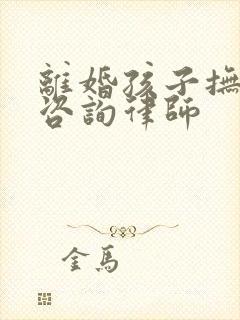 離婚孩子撫
咨詢律師
金馬